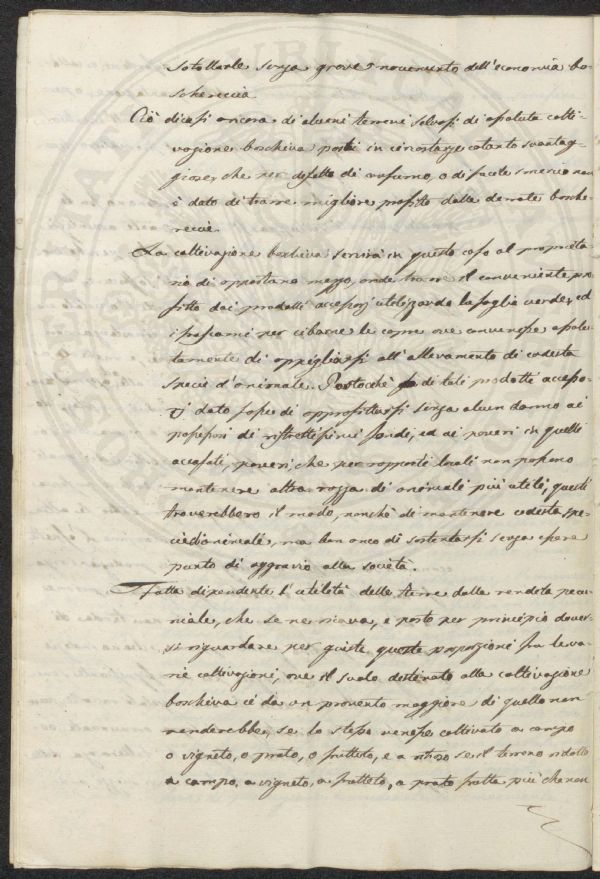 sotollarle senza grave snovimento dell'economia bo-
schereccia.
Ciò dicasi ancora di alcuni terreni selvosi di assoluta colti-
vazione boschiva posti in circostanze cotanto svantag-
giose, che per difetto di consumo, o di facile smercio non
è dato di trarre migliore profitto dalle derrate bosche-
reccie.
La coltivazione boschiva servirà in questo caso al proprieta-
rio di opportuno mezzo, onde trarre il conveniente pro-
fitto dai prodotti accessorj utilizzando la foglia verde, ed
i frascami per cibarne le capre ove convenisse assolu-
tamente di appigliarsi all'allevamento di codesta
specie d'animale. Postocchè di tali prodotti accesso-
rj dato fosse di approfittarsi senza alcun danno ai
possessori di ristrettissimi fondi, ed ai poveri in quelli
accasati, poveri, che per rapporti locali non possono
mantenere altra razza di animali più utile, questi
troverebbero il modo, nonchè di mantenere codesta spe-
cie d'animali, ma ben anco di sostentarsi senza essere
punto di aggravio alla società.
Fatta dipendente l'utilità delle terre dalla rendita pecu-
niale, che se ne ricava, e posto per principio dover-
si riguardare per giuste queste proporzioni fra le va-
rie coltivazioni, ove il suolo destinato alla coltivazione
boschiva ci da un provento maggiore di quello non
renderebbe, se lo stesso venisse coltivato a campo
o vigneto, o prato, o frutteto, e a ritroso se il terreno ridotto
a campo, a vigneto, a frutteto, a prato frutta più che non